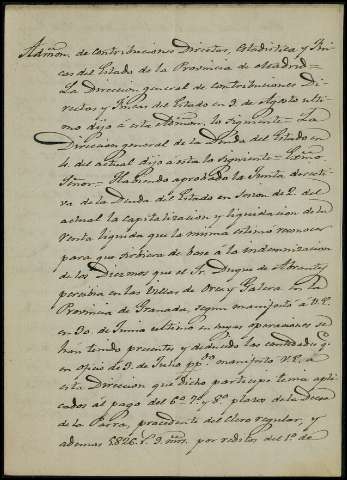 Admon. de Contribuciones Directas, Estadistica y Fin
cas del Estado de la Provincia de Madrid =
La Direccion general de Contribuciones Di
rectas y Fincas del Estado en 9 de Agosto ulti
mo dijo á esta Admon. lo siguiente = La
Direccion general de la Deuda del Estado en
4 del actual dijo á esta lo siguiente = Escmo.
Señor = Habiendo aprobado la Junta directi
va de la Deuda del Estado en sesion de 2 del
actual la capitalizacion y liquidacion de la
renta liquida que la misma estimó reconocer
para que sirviera de base á la indemnizacion
de los Diezmos que el Sr. Duque de Abrantes
percibia en las Villas de Orce y Galera en la
Provincia de Granada, segun manifestó á V.E.
en 30 de Junio ultimo en cuyas operaciones se
han tenido presentes y deducido las cantidades q.
en oficio de 9 de Julio pp.do manifestó V.E. á
esta Direccion que dicho participe tenia apli
cados al pago del 6.º 7.º y 8.º plazos de la Decesa
de la Parra, procedente del Clero regular, y
ademas 5826 r.s 9 mrs. por reditos del 1.º de